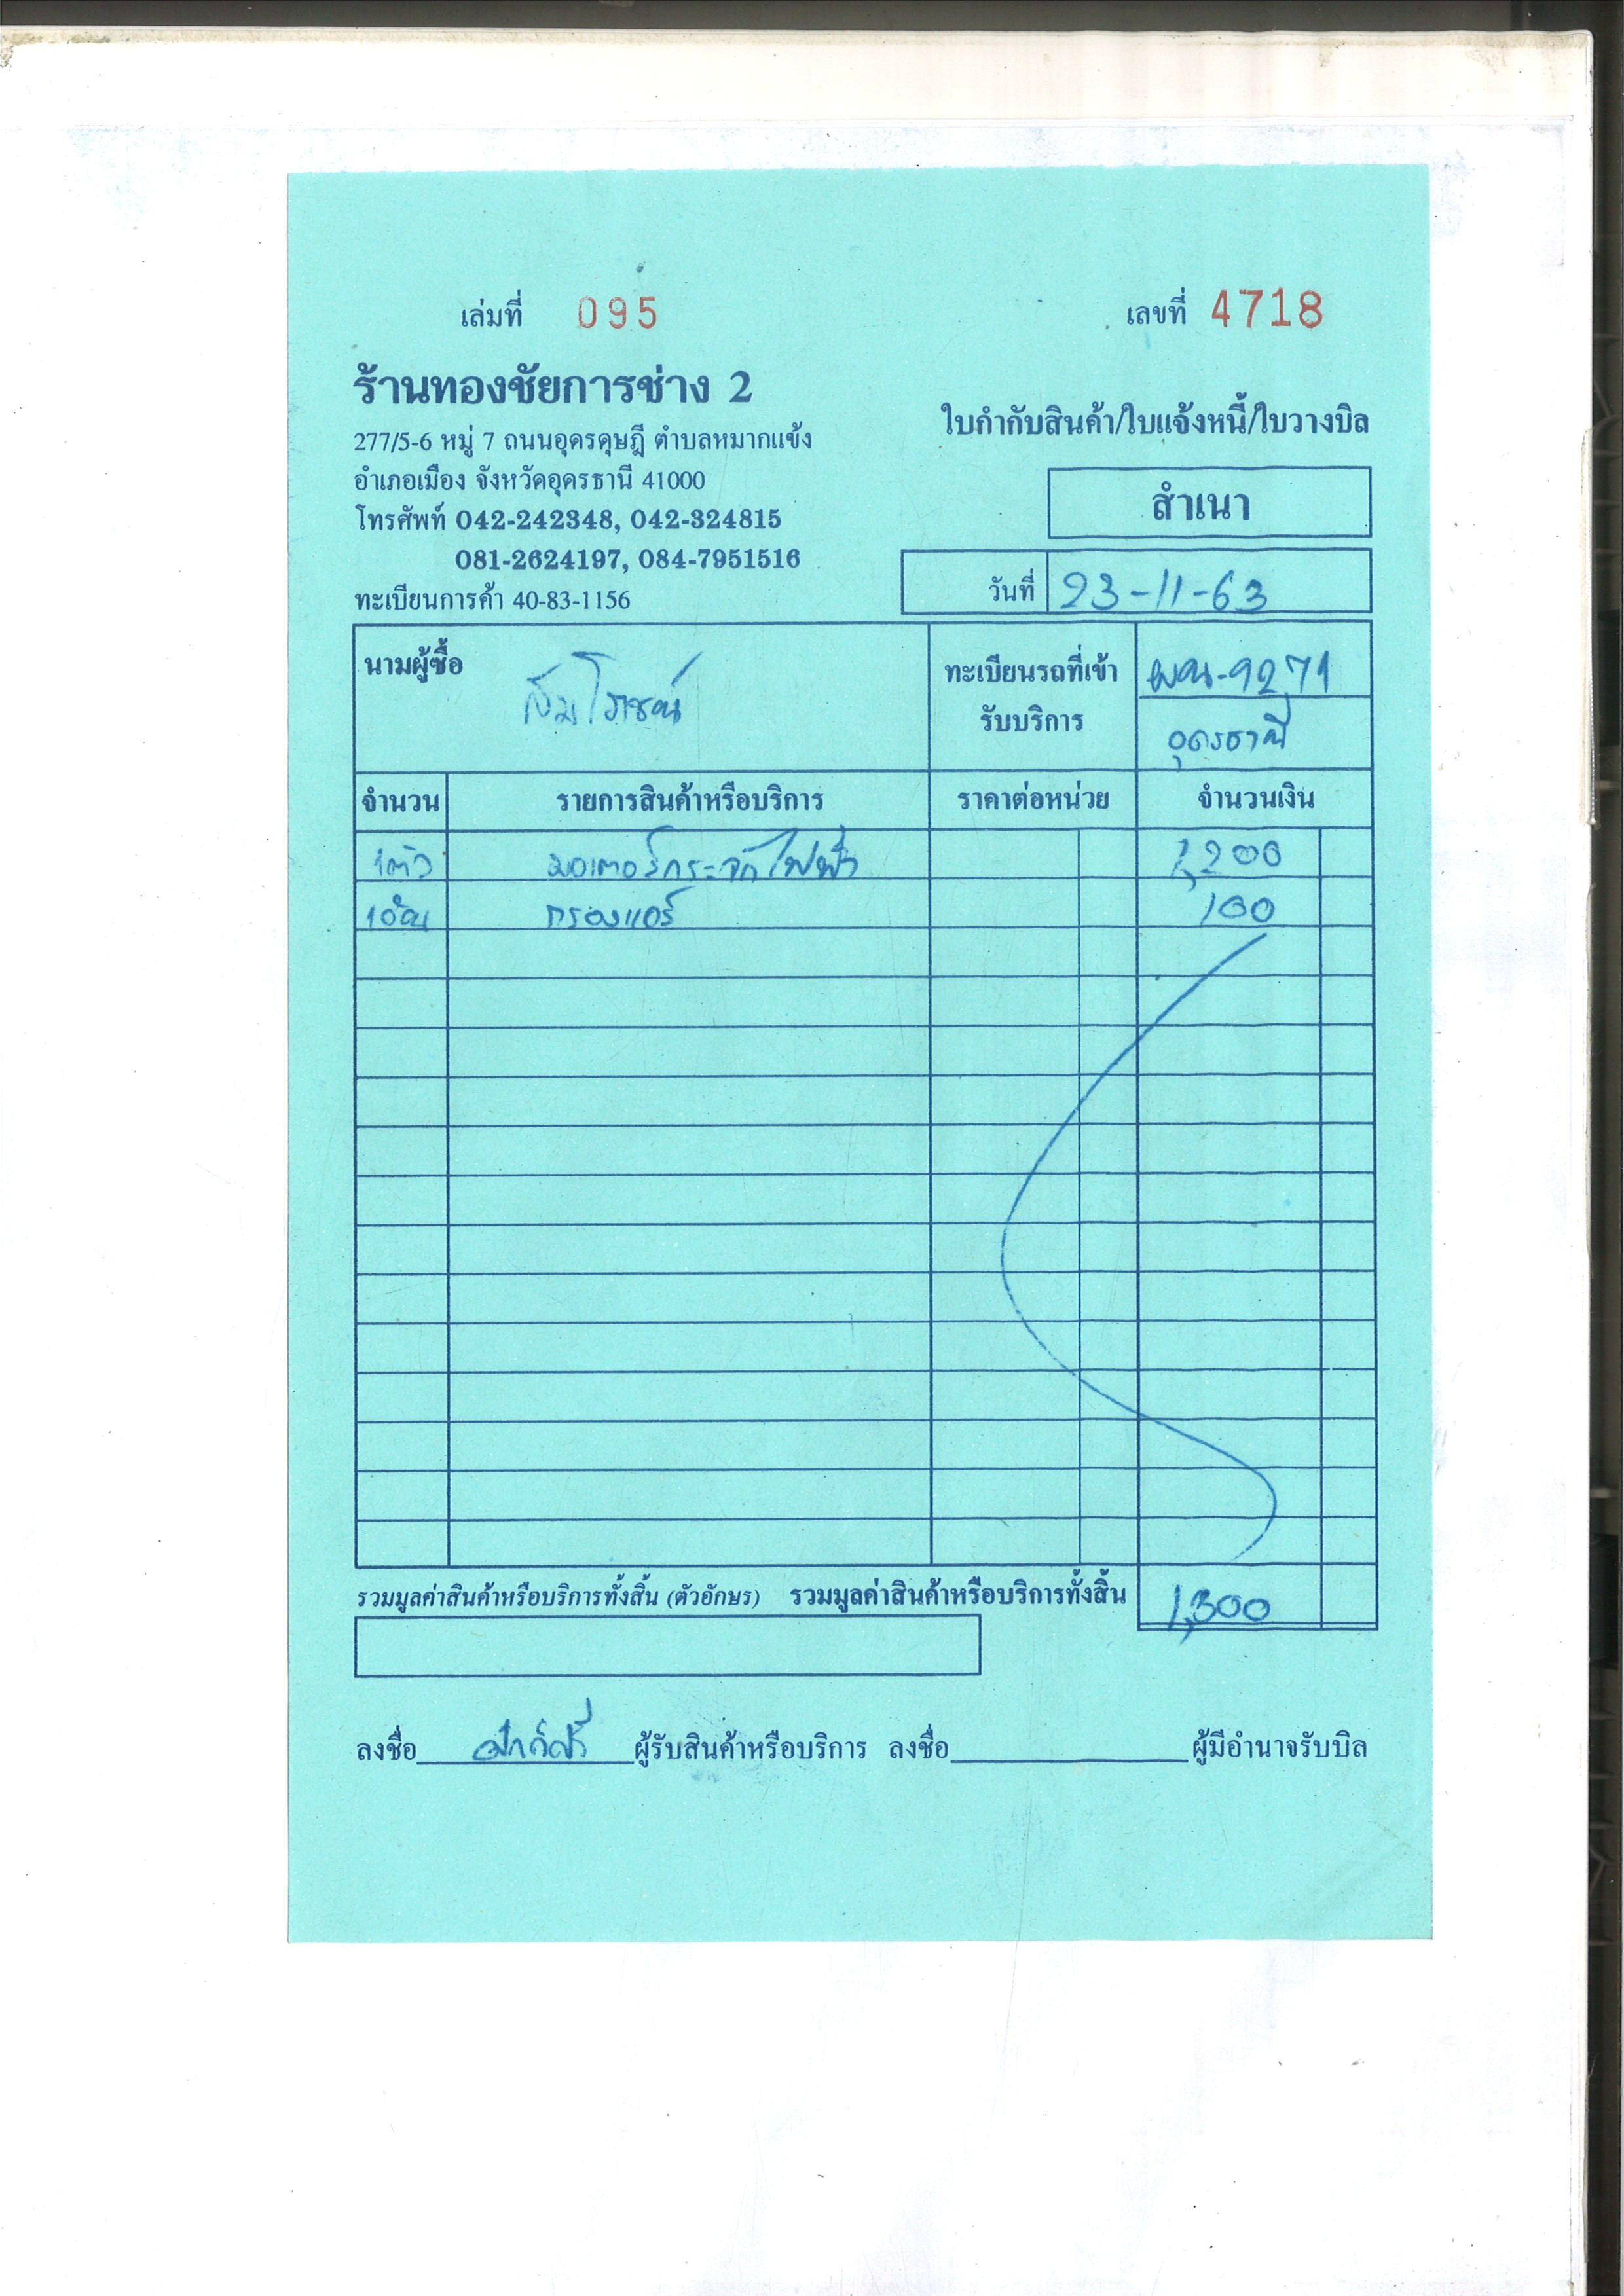 เล่มที่ 095 เลขที่ 4718
ร้านทองชัยการช่าง 2
ใบกำกับสินค้า/ใบแจ้งหนี้/ใบวางบิล
277/5-6 หมู่ 7 ถนนอุดรดุษฎี ตำบลหมากแข้ง
อำเภอเมือง จังหวัดอุดรธานี 41000
สำเนา
โทรศัพท์ 042-242348, 042-324815
081-2624197, 084-7951516
วันที่ 23-11-63
ทะเบียนการค้า 40-83-1156
นามผู้ซื้อ
ทะเบียนรถที่เข้า -9271
รับบริการ อุดรธานี
จำนวน รายการสินค้าหรือบริการ ราคาต่อหน่วย จำนวนเงิน
1ตัว มอเตอร์กระจกไฟฟ้า 1,200
1อัน กรองแอร์ 100
รวมมูลค่าสินค้าหรือบริการทั้งสิ้น (ตัวอักษร) รวมมูลค่าสินค้าหรือบริการทั้งสิ้น 1,300
ลงชื่อ ผู้รับสินค้าหรือบริการ ลงชื่อ ผู้มีอำนาจรับบิล